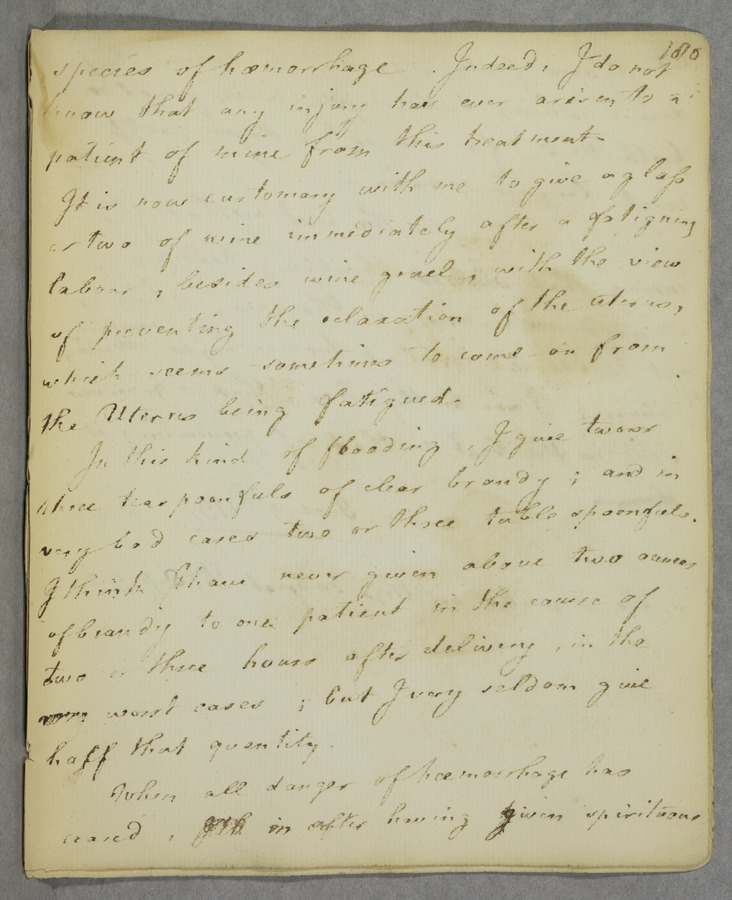 186
species of hæmorrhage. Indeed, I do not
know that any injury has ever arisen to
patient of mine from this treatment
It is now customary with me to give a glass
or two of wine immediately after a fatiguing
labour, besides wine gruel, with the view
of preventing the relaxation of the uterus,
which seems sometimes to come on from
the Uterus being fatigued.
In this kind of flooding, I give two or
three teaspoonfuls of clear brandy; and in
very bad cases two or three table spoonfuls.
I think I have never given above two ounces
of brandy to one patient in the course of
two or three hours after delivery, in the
worst cases; but I very seldom give
half that quantity.
When all danger of hæmorrhage has
ceased, in after having given spirituous